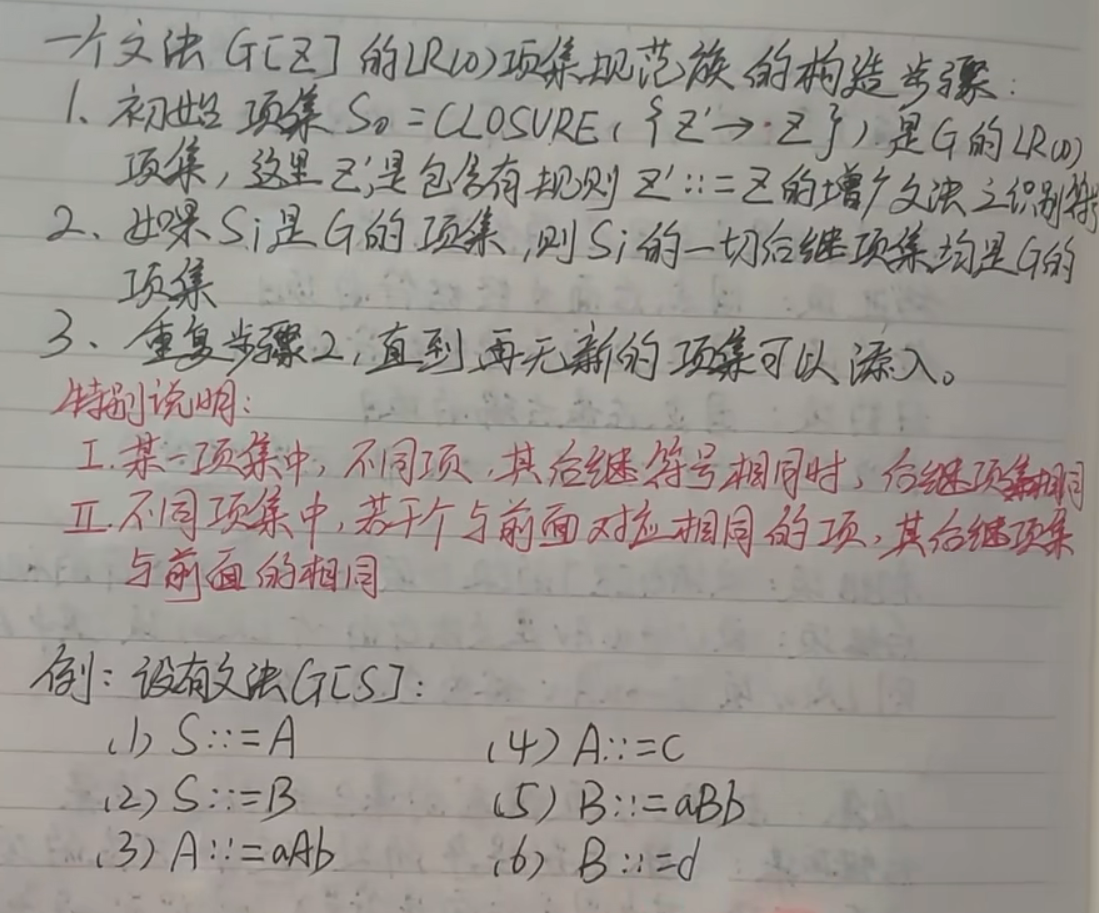 一个文法G[Z]的LR(0)项集规范族的构造步骤:
1、初始项集S₀=CLOSURE({Z'→·Z})是G的LR(0)
项集,这里Z'是包含有规则Z'::=Z的增广文法之识别符号
2、如果Si是G的项集,则Si的一切后继项集均是G的
项集
3、重复步骤2,直到再无新的项集可以添入。
特别说明:
I.某一项集中,不同项,其后继符号相同时,后继项集相同
II.不同项集中,若干个与前面对应相同的项,其后继项集
与前面的相同
例:设有文法G[S]:
(1) S::=A (4) A::=c
(2) S::=B (5) B::=aBb
(3) A::=aAb (6) B::=d